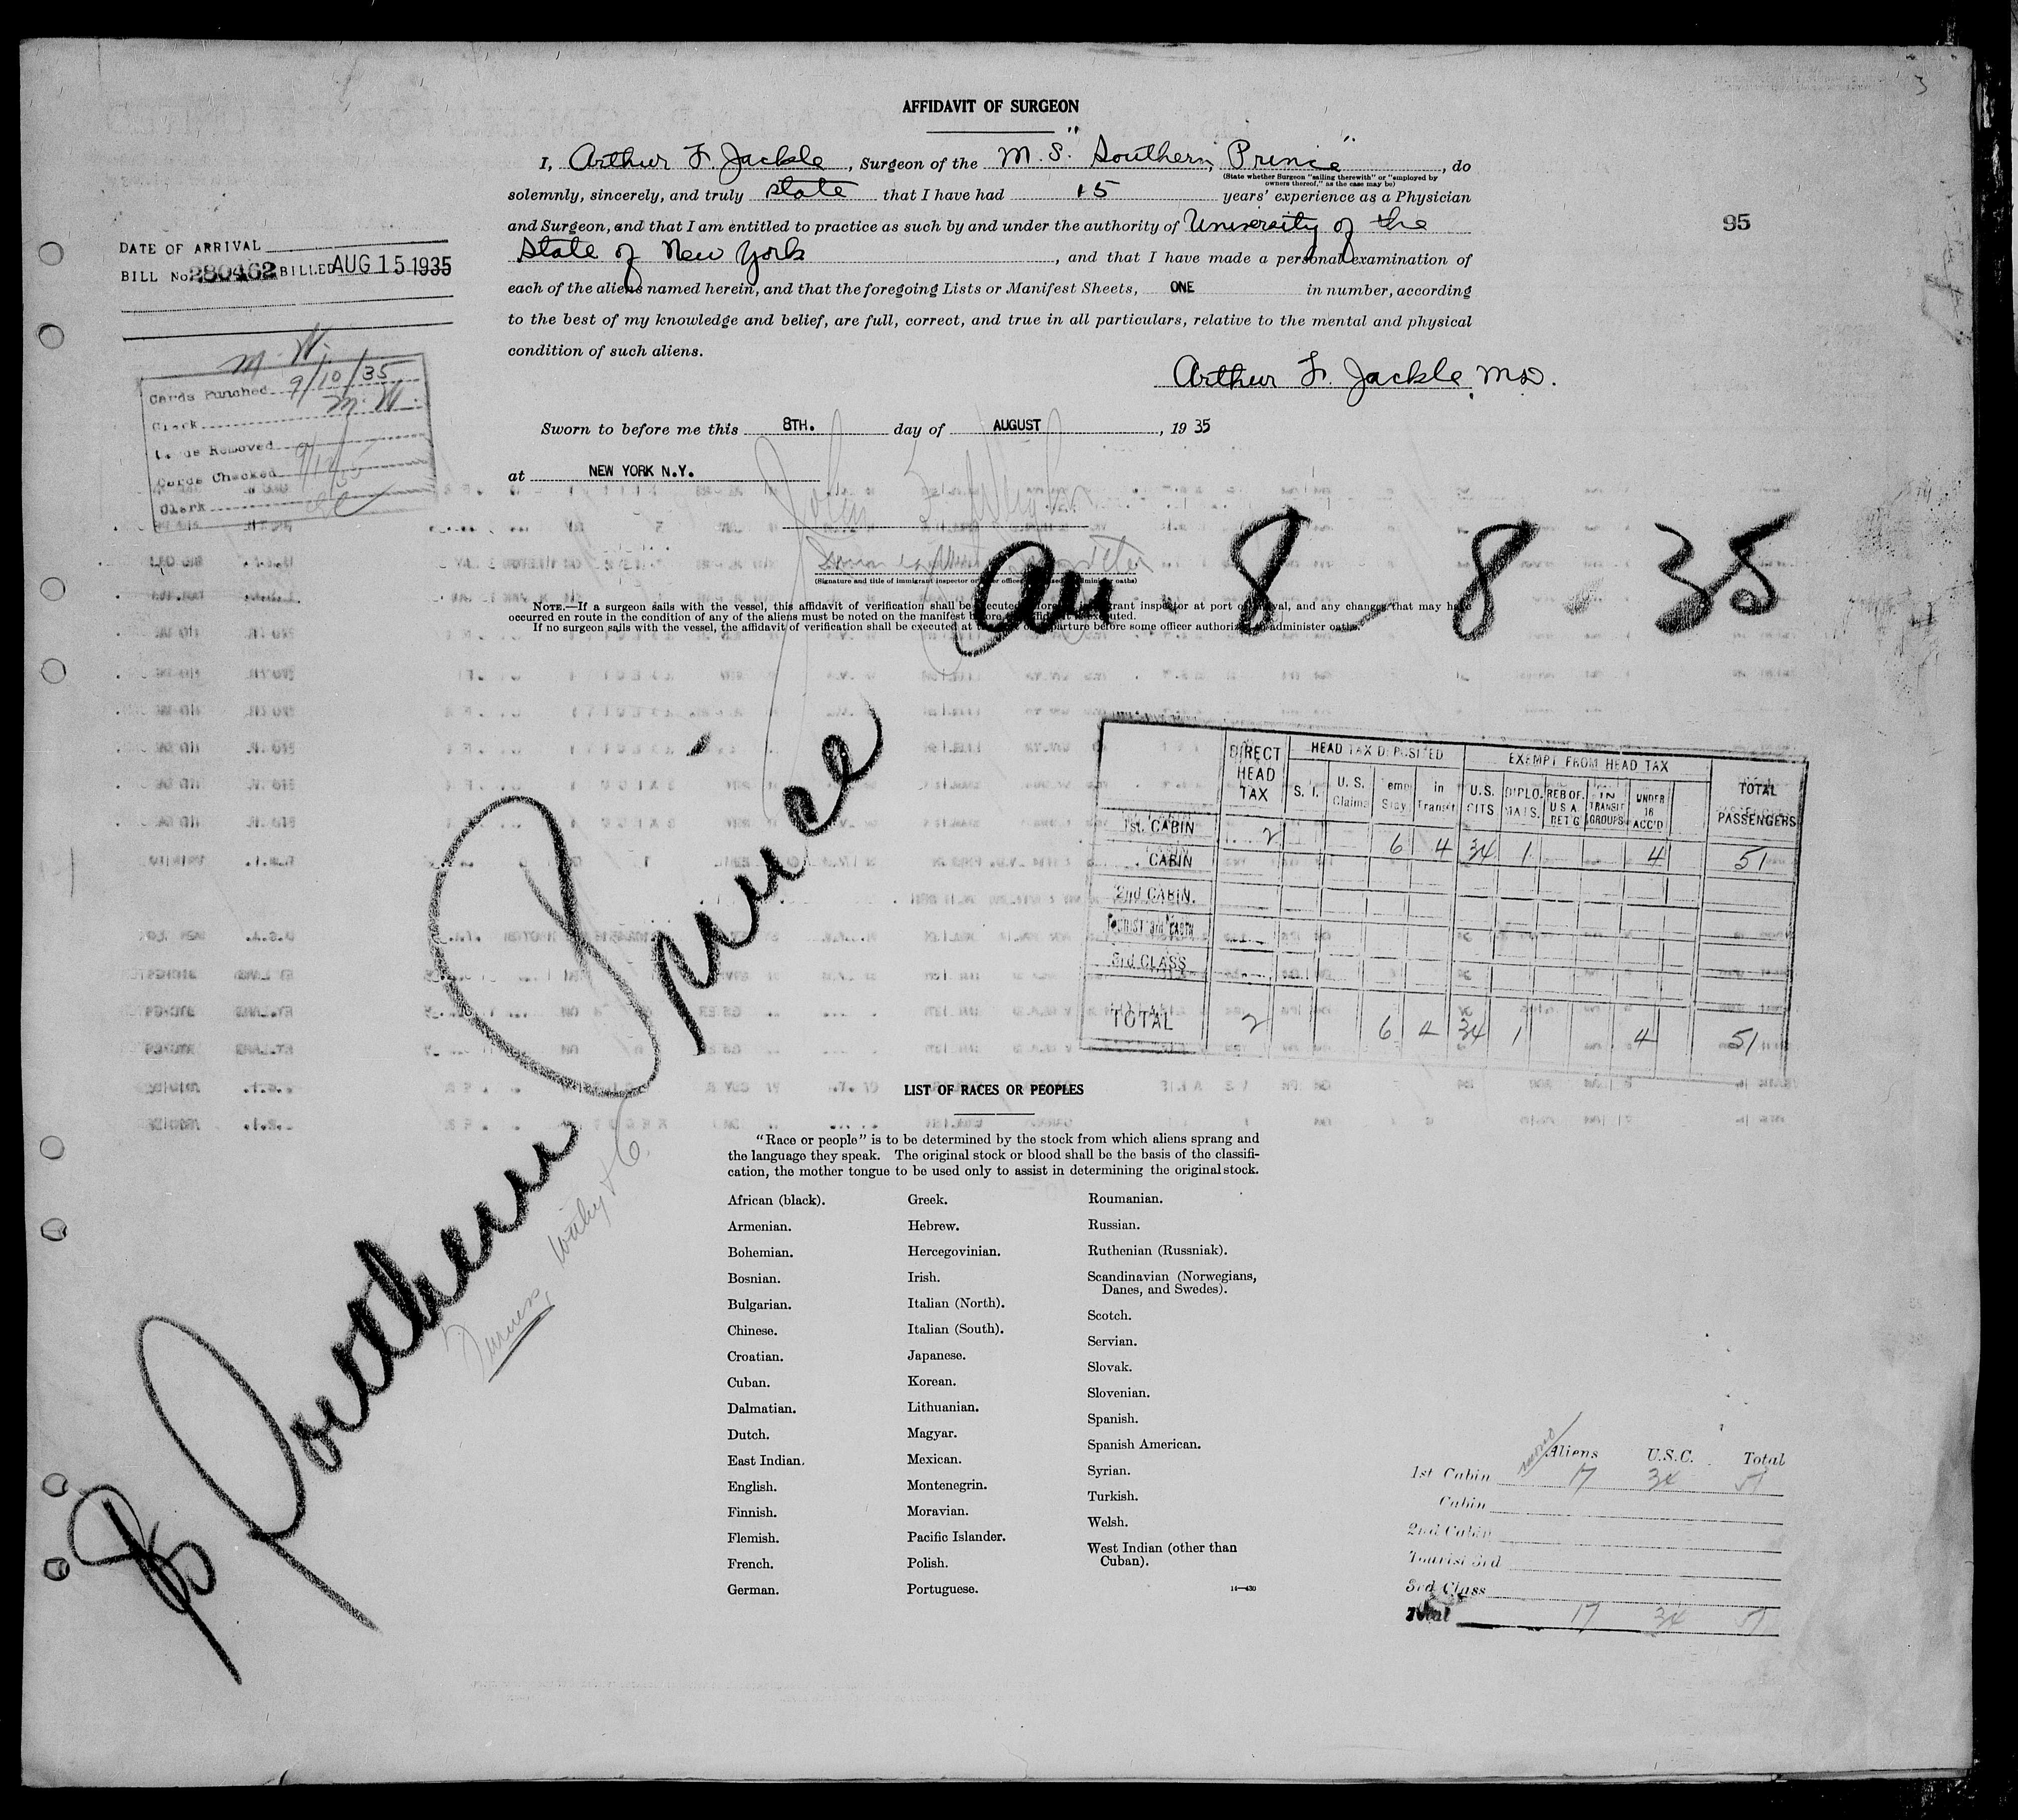 3
AFFIDAVIT OF SURGEON
I, Arthur F. Jackle, Surgeon of the M.S. "Southern Prince", do
(State whether Surgeon "sailing therewith" or "employed by
owners thereof," as the case may be)
solemnly, sincerely, and truly state that I have had 15 years' experience as a Physician
and Surgeon, and that I am entitled to practice as such by and under the authority of University of the
State of New York, and that I have made a personal examination of
each of the aliens named herein, and that the foregoing Lists or Manifest Sheets, ONE in number, according
to the best of my knowledge and belief, are full, correct, and true in all particulars, relative to the mental and physical
condition of such aliens.
Arthur F. Jackle, MD.
95
DATE OF ARRIVAL
BILL No. 280462 BILLED AUG 15 1935
M. W.
Cards Punched 9/10/35
Clerk M. W.
Cards Removed
Cards Checked 9/12/35
Clerk
Sworn to before me this 8TH. day of AUGUST, 1935
at NEW YORK N.Y.
John
(Signature and title of immigrant inspector or other officer authorized to administer oaths)
8 - 8 - 35
NOTE.—If a surgeon sails with the vessel, this affidavit of verification shall be executed before immigrant inspector at port of arrival, and any changes that may have
occurred en route in the condition of any of the aliens must be noted on the manifest before affidavit is executed.
If no surgeon sails with the vessel, the affidavit of verification shall be executed at the port of departure before some officer authorized to administer oaths.
Southern Prince
DIRECT HEAD TAX HEAD TAX DEPOSITED EXEMPT FROM HEAD TAX TOTAL PASSENGERS
S. I. U. S. Claims Temp Stay in Transit U.S. CITS DIPLOMATS. REB OF. U S A. RET'G IN TRANSIT GROUPS UNDER 16 ACC'D
1st. CABIN 2 6 4 34 1 4 51
CABIN
2nd CABIN.
TOURIST 3rd CABIN
3rd CLASS
TOTAL 2 6 4 34 1 4 51
LIST OF RACES OR PEOPLES
"Race or people" is to be determined by the stock from which aliens sprang and
the language they speak. The original stock or blood shall be the basis of the classifi-
cation, the mother tongue to be used only to assist in determining the original stock.
African (black).
Armenian.
Bohemian.
Bosnian.
Bulgarian.
Chinese.
Croatian.
Cuban.
Dalmatian.
Dutch.
East Indian.
English.
Finnish.
Flemish.
French.
German.
Greek.
Hebrew.
Hercegovinian.
Irish.
Italian (North).
Italian (South).
Japanese.
Korean.
Lithuanian.
Magyar.
Mexican.
Montenegrin.
Moravian.
Pacific Islander.
Polish.
Portuguese.
Roumanian.
Russian.
Ruthenian (Russniak).
Scandinavian (Norwegians,
Danes, and Swedes).
Scotch.
Servian.
Slovak.
Slovenian.
Spanish.
Spanish American.
Syrian.
Turkish.
Welsh.
West Indian (other than
Cuban).
14—430
Aliens U.S.C. Total
1st Cabin 17 34 51
Cabin
2nd Cabin
Tourist 3rd
3rd Class
Total 17 34 51